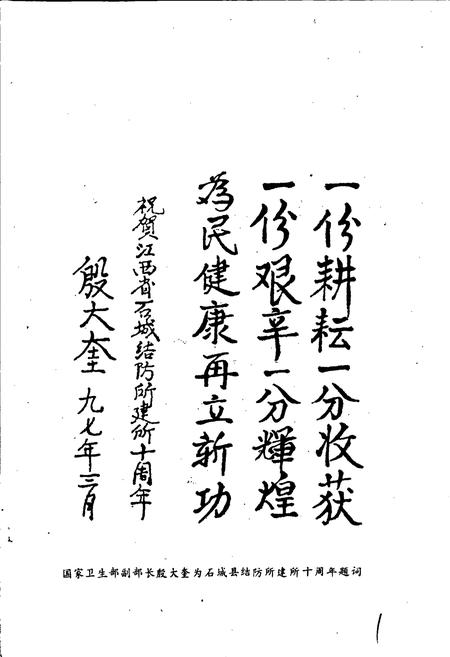 一份耕耘一分收获
一份艰辛一分輝煌
为民健康再立新功
祝贺江西省石城结防所建所十周年
殷大奎 九七年三月
国家卫生部副部长殷大奎为石城县结防所建所十周年题词
1